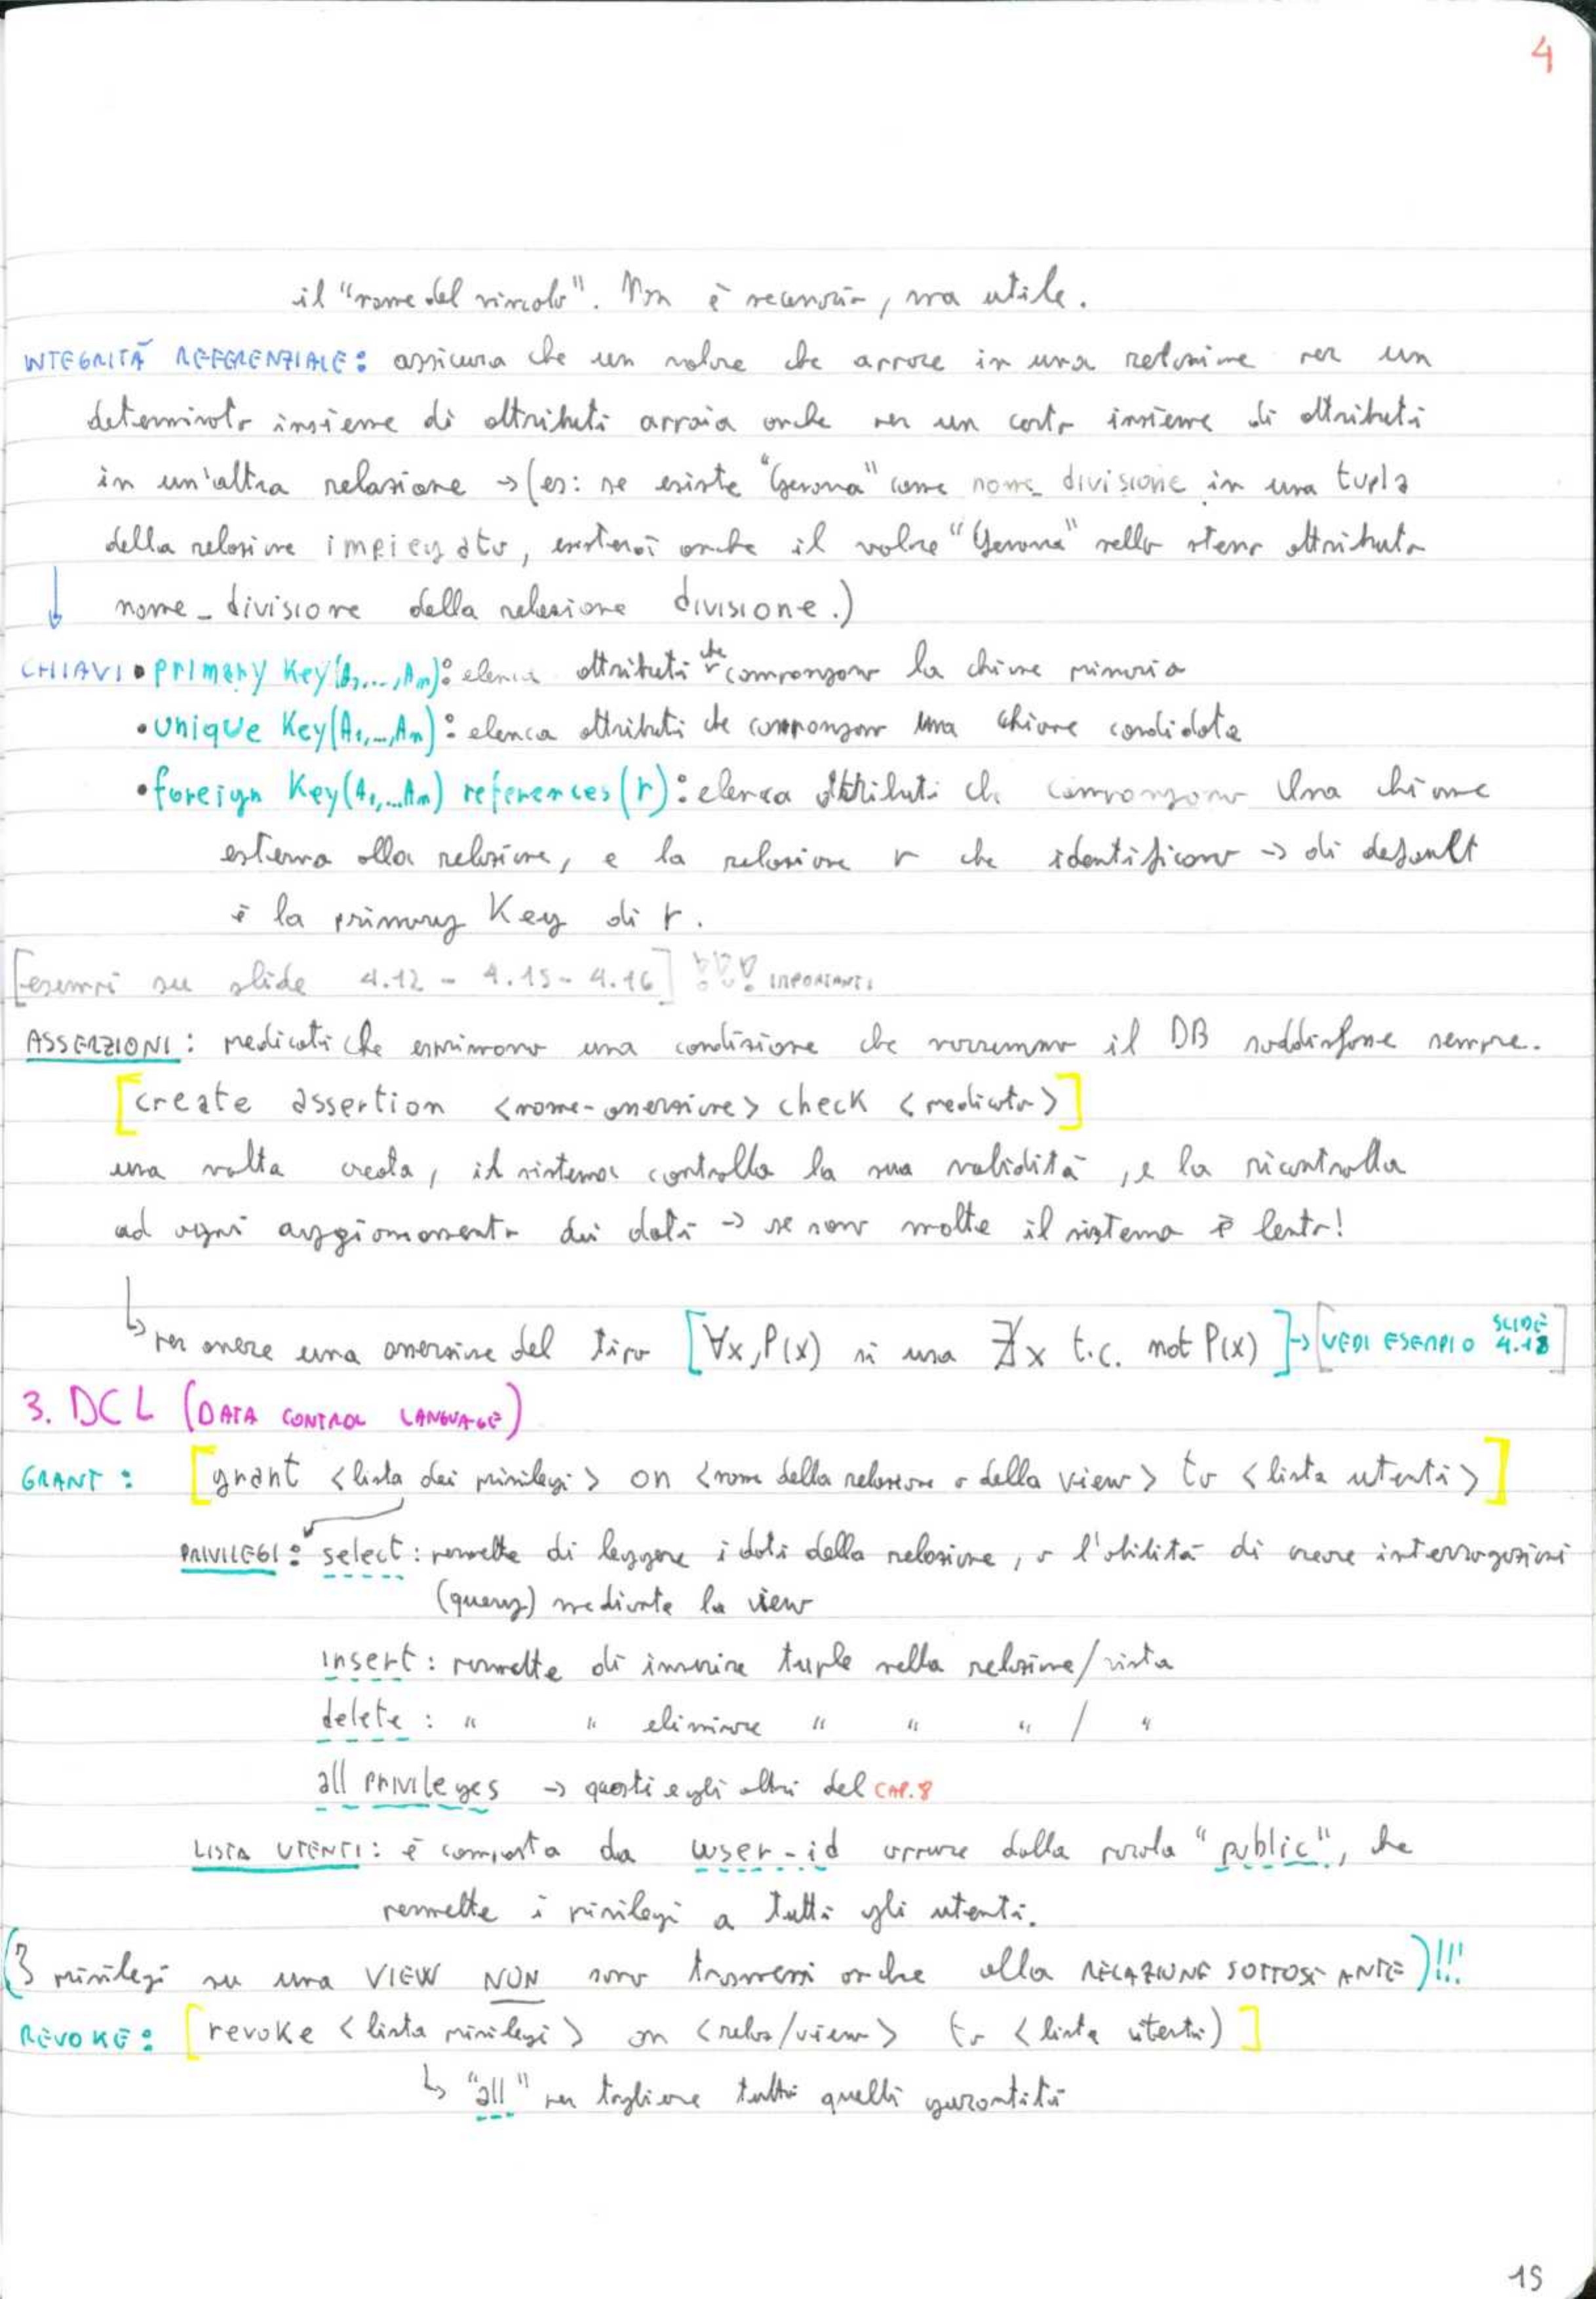 4
il "nome del vincolo". Non è necessario, ma utile.
INTEGRITÀ REFERENZIALE: assicura che un valore che appare in una relazione per un
determinato insieme di attributi appaia anche per un certo insieme di attributi
in un'altra relazione → (es: se esiste "Gerona" come nome_divisione in una tupla
della relazione impiegato, esisterà anche il valore "Gerona" nello stesso attributo
nome_divisione della relazione divisione.)
CHIAVI • primary Key(A1,...,An): elenca attributi che compongono la chiave primaria
• unique Key(A1,...,An): elenca attributi che compongono una chiave candidata
• foreign Key(A1,...An) references(r): elenca attributi che compongono una chiave
esterna alla relazione, e la relazione r che identificano → di default
è la primary Key di r.
[esempi su slide 4.12 - 4.15 - 4.16] !!! IMPORTANTI
ASSERZIONI: predicati che esprimono una condizione che vorremmo il DB soddisfasse sempre.
[create assertion <nome-asserzione> check <predicato>]
una volta creata, il sistema controlla la sua validità, e la ricontrolla
ad ogni aggiornamento dei dati → se sono molte il sistema è lento!
↳ per avere una asserzione del tipo [∀x, P(x) si usa ∄x t.c. not P(x)] → [VEDI ESEMPIO SLIDE 4.18]
3. DCL (DATA CONTROL LANGUAGE)
GRANT: [grant <lista dei privilegi> on <nome della relazione o della view> to <lista utenti>]
PRIVILEGI: select: permette di leggere i dati della relazione, o l'abilità di creare interrogazioni
(query) mediante la view
insert: permette di inserire tuple nella relazione/vista
delete: " " eliminare " " " / "
all privileges → questi e gli altri del CAP.8
LISTA UTENTI: è composta da user-id oppure dalla parola "public", che
permette i privilegi a tutti gli utenti.
(I privilegi su una VIEW NON sono trasmessi anche alla RELAZIONE SOTTOSTANTE)!!!
REVOKE: [revoke <lista privilegi> on <relaz/view> to <lista utenti)]
↳ "all" per togliere tutti quelli garantiti
15